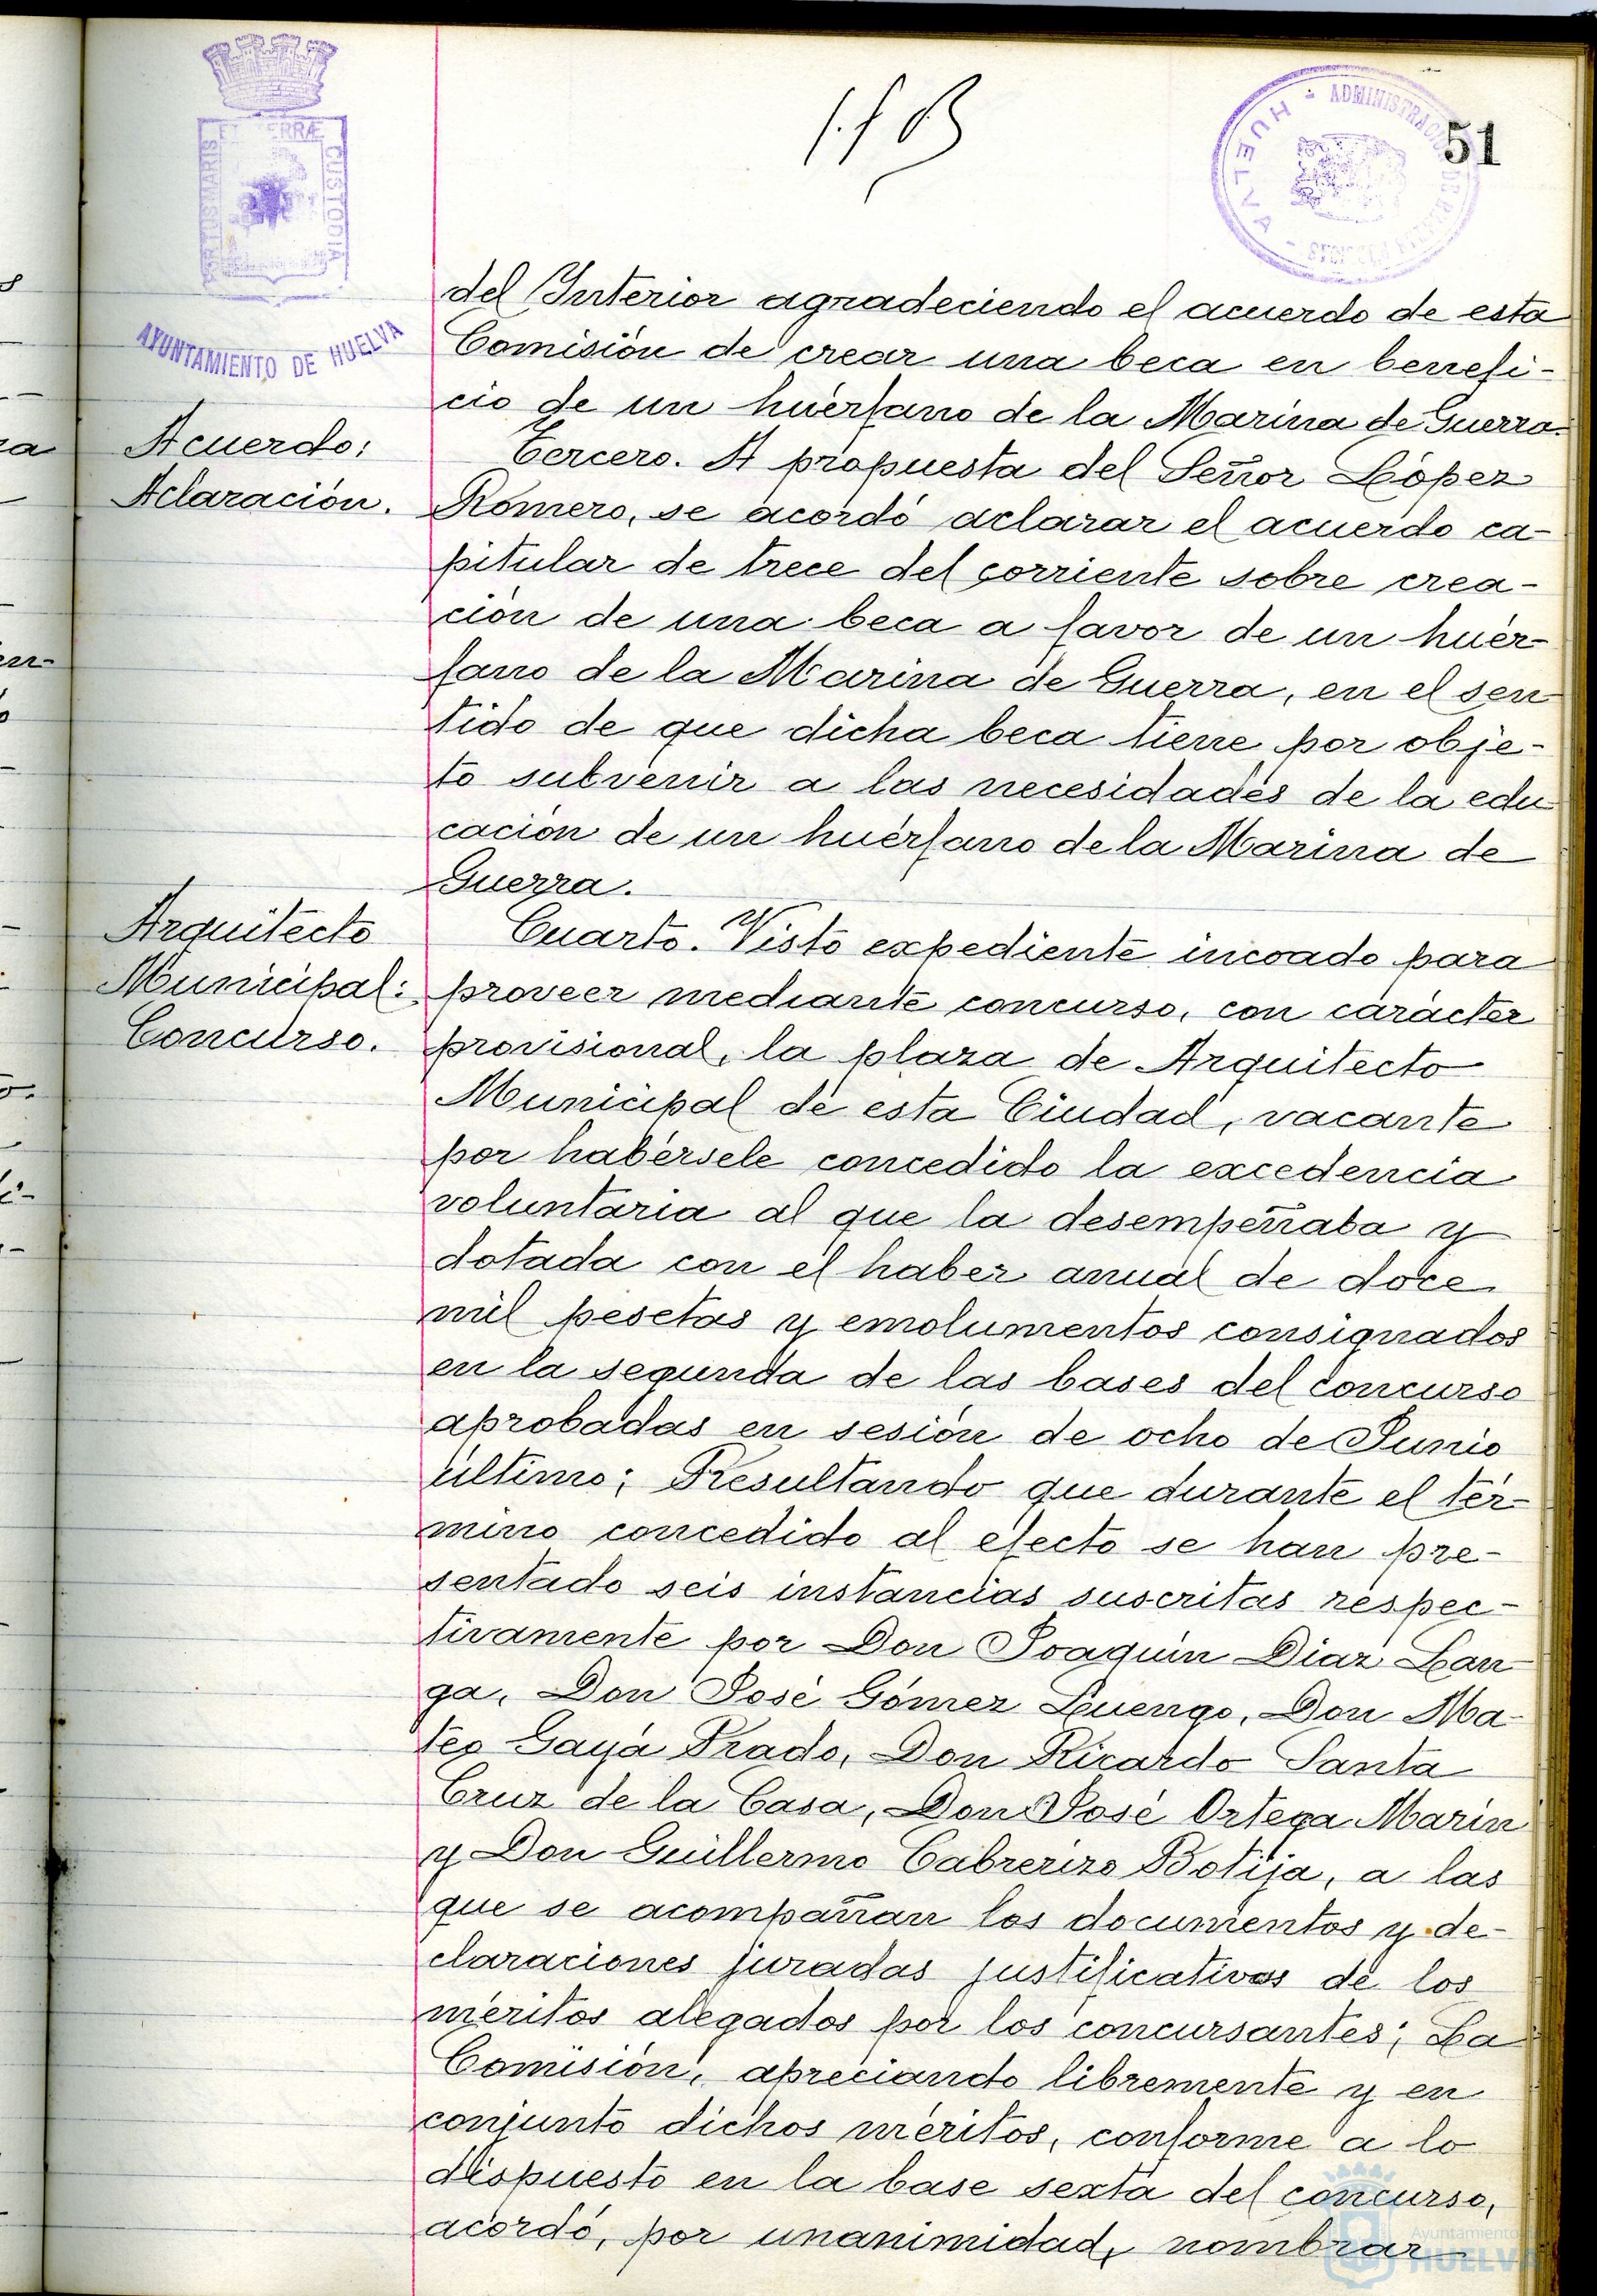 51
ADMINISTRACIÓN DE RENTAS PÚBLICAS - HUELVA -
PORTUS MARIS ET TERRÆ CUSTODIA
AYUNTAMIENTO DE HUELVA
del Interior agradeciendo el acuerdo de esta
Comisión de crear una beca en benefi-
cio de un huérfano de la Marina de Guerra.
Acuerdo:
Aclaración.
Tercero. A propuesta del Señor López
Romero, se acordó aclarar el acuerdo ca-
pitular de trece del corriente sobre crea-
ción de una beca a favor de un huér-
fano de la Marina de Guerra, en el sen
tido de que dicha beca tiene por obje-
to subvenir a las necesidades de la edu
cación de un huérfano de la Marina de
Guerra.
Arquitecto
Municipal:
Concurso.
Cuarto. Visto expediente incoado para
proveer mediante concurso, con carácter
provisional, la plaza de Arquitecto
Municipal de esta Ciudad, vacante
por habérsele concedido la excedencia
voluntaria al que la desempeñaba y
dotada con el haber anual de doce
mil pesetas y emolumentos consignados
en la segunda de las bases del concurso
aprobadas en sesión de ocho de Junio
último; Resultando que durante el tér-
mino concedido al efecto se han pre-
sentado seis instancias suscritas respec-
tivamente por Don Joaquín Díaz Lan-
ga, Don José Gómez Luengo, Don Ma-
teo Gayá Prado, Don Ricardo Santa
Cruz de la Casa, Don José Ortega Marín
y Don Guillermo Cabrerizo Botija, a las
que se acompañan los documentos y de-
claraciones juradas justificativas de los
méritos alegados por los concursantes; La
Comisión, apreciando libremente y en
conjunto dichos méritos, conforme a lo
dispuesto en la base sexta del concurso,
acordó, por unanimidad, nombrar
Ayuntamiento de
HUELVA